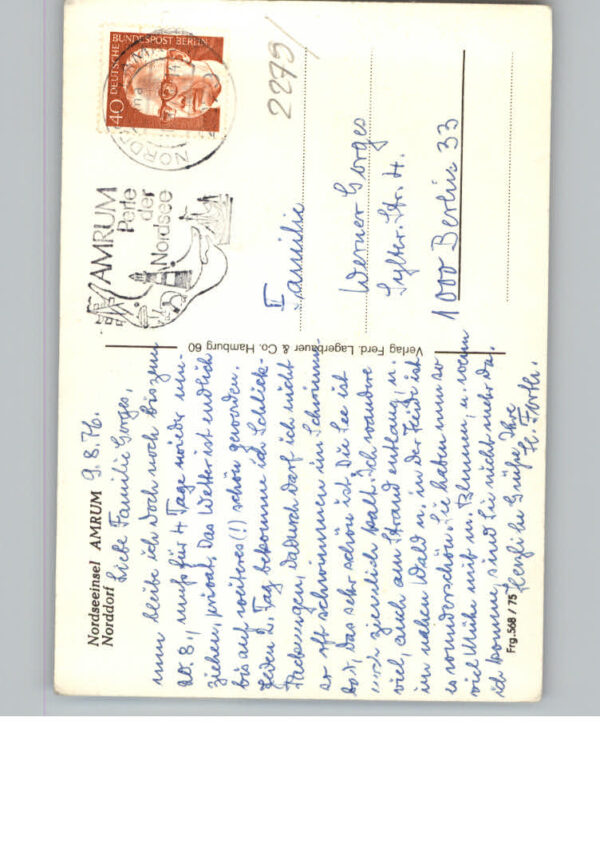 Nordseeinsel AMRUM
Norddorf
9.8.76.
Liebe Familie Gorges,
nun bleibe ich doch noch bis zum
20.8., muß für 4 Tage wieder um-
ziehen, privat. Das Wetter ist endlich
bis auf weiteres (!) schön geworden.
Jeden 2. Tag bekomme ich Schlick-
Packungen, dadurch darf ich nicht
so oft schwimmen im Schwimm-
bad, das sehr schön ist. Die See ist
noch ziemlich kalt. Ich wandere
viel, auch am Strand entlang, u.
im nahen Wald u. in der Heide ist
es wunderschön. Sie haben nun so
viel Mühe mit m. Blumen, u. wenn
ich komme, sind Sie nicht mehr da.
Herzliche Grüße, Ihre
Frg. 568 / 75
Verlag Ferd. Lagerbauer & Co. Hamburg 60
AMRUM
Perle
der
Nordsee
40 DEUTSCHE BUNDESPOST BERLIN
NORDD
2275/
Familie
Werner Gorges
Sylter Str. 4.
1000 Berlin 33